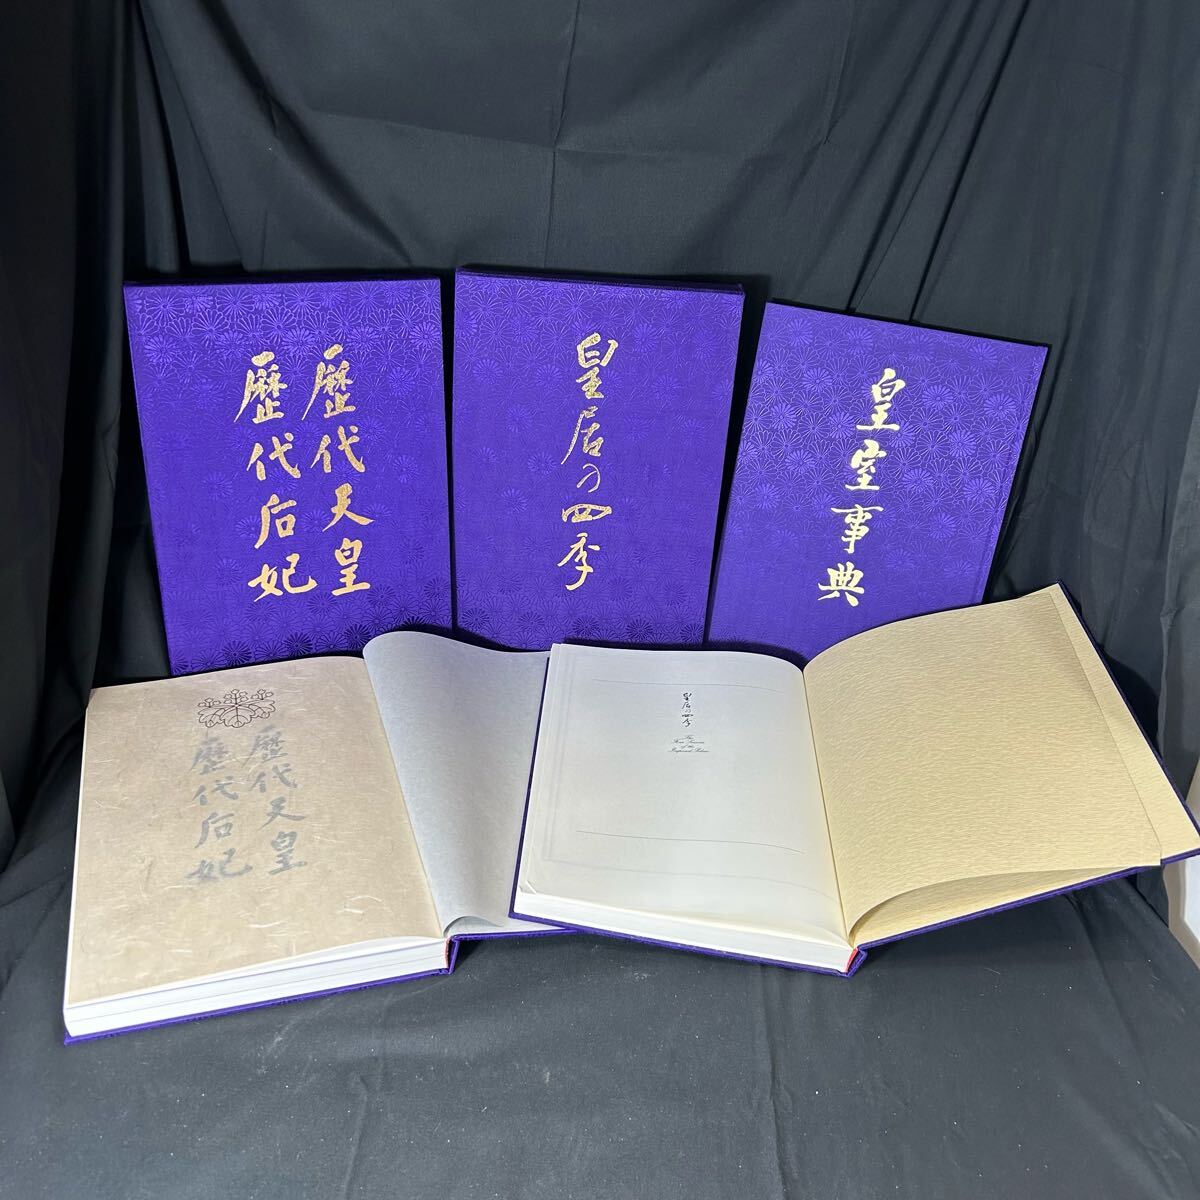 歴代天皇
歴代后妃
皇居の四季
皇室事典
歴代天皇
歴代后妃
皇居の四季
The
Four Seasons
of the
Imperial Palace